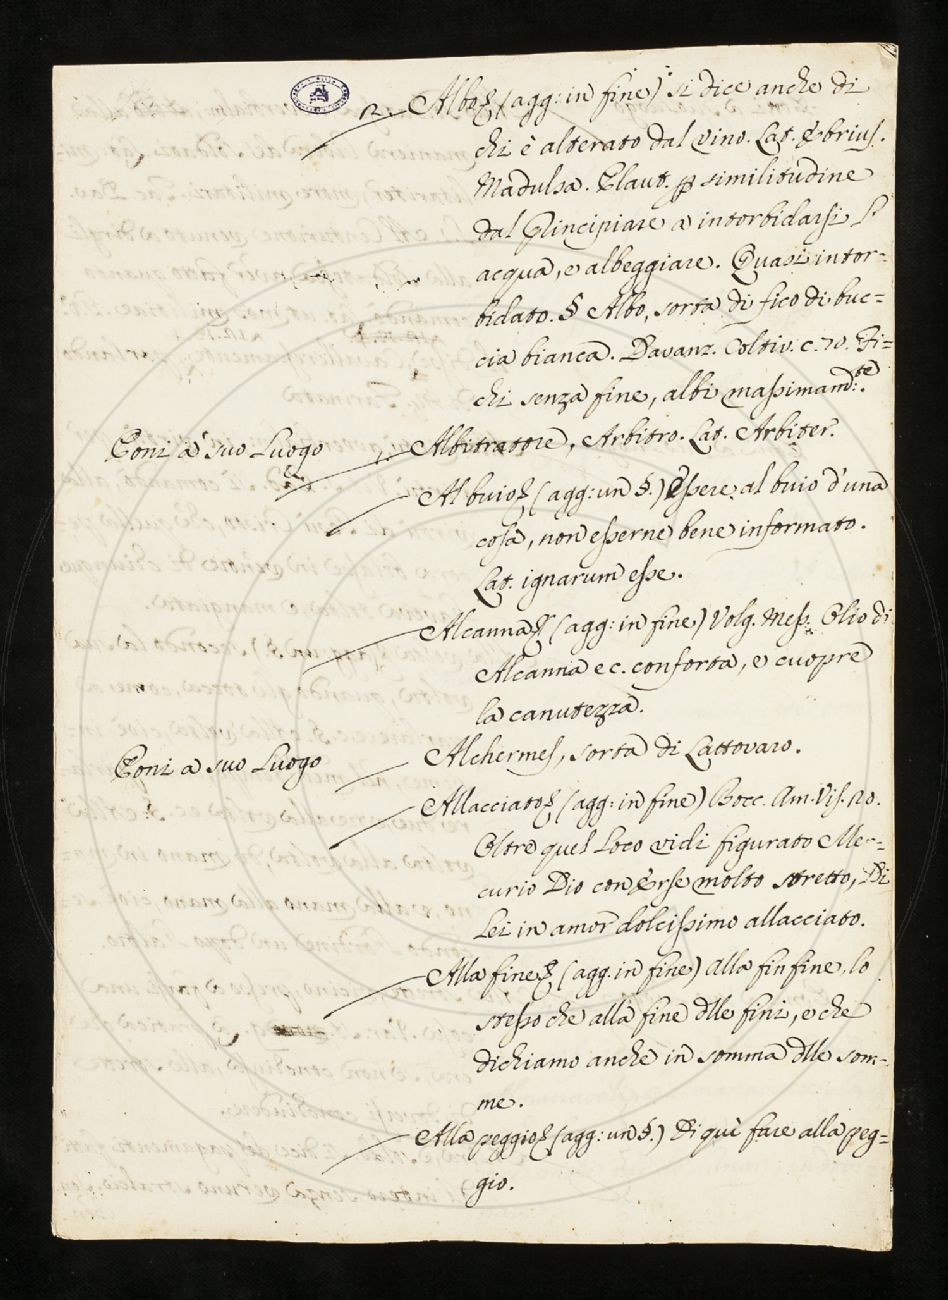 12. Albo § (agg: in fine) si dice anche di
chi è alterato dal vino. Lat. Ebrius.
Madulsa. Plaut. ꝑ similitudine
dal Principiare a intorbidarsi l'
acqua, e albeggiare. Quasi intor=
bidato. § Albo, sorta di fico di buc=
cia bianca. Davanz. Coltiv. c. 20. Fi=
chi senza fine, albi massimam:te
Poni a suo Luogo Albitratore, Arbitro. Lat. Arbiter.
Al buio § (agg: un §.) Essere al buio d'una
cosa, non esserne bene informato.
Lat. ignarum esse.
Alcanna § (agg: in fine) Volg. Mess. Olio di
Alcanna ec. conforta, e cuopre
la canutezza.
Poni a suo Luogo Alchermes, sorta di Lattovaro.
Allacciato § (agg: in fine) Bocc. Am. Vis. 20.
Oltre quel Loco vidi figurato Mer=
curio Dio con Erse molto stretto, Di
Lei in amor dolcissimo allacciato.
Alla fine § (agg. in fine) alla fin fine, lo
stesso che alla fine dlle fini, e che
dichiamo anche in somma dlle som=
me.
Alla peggio § (agg: un §.) Di quì fare alla peg=
gio.